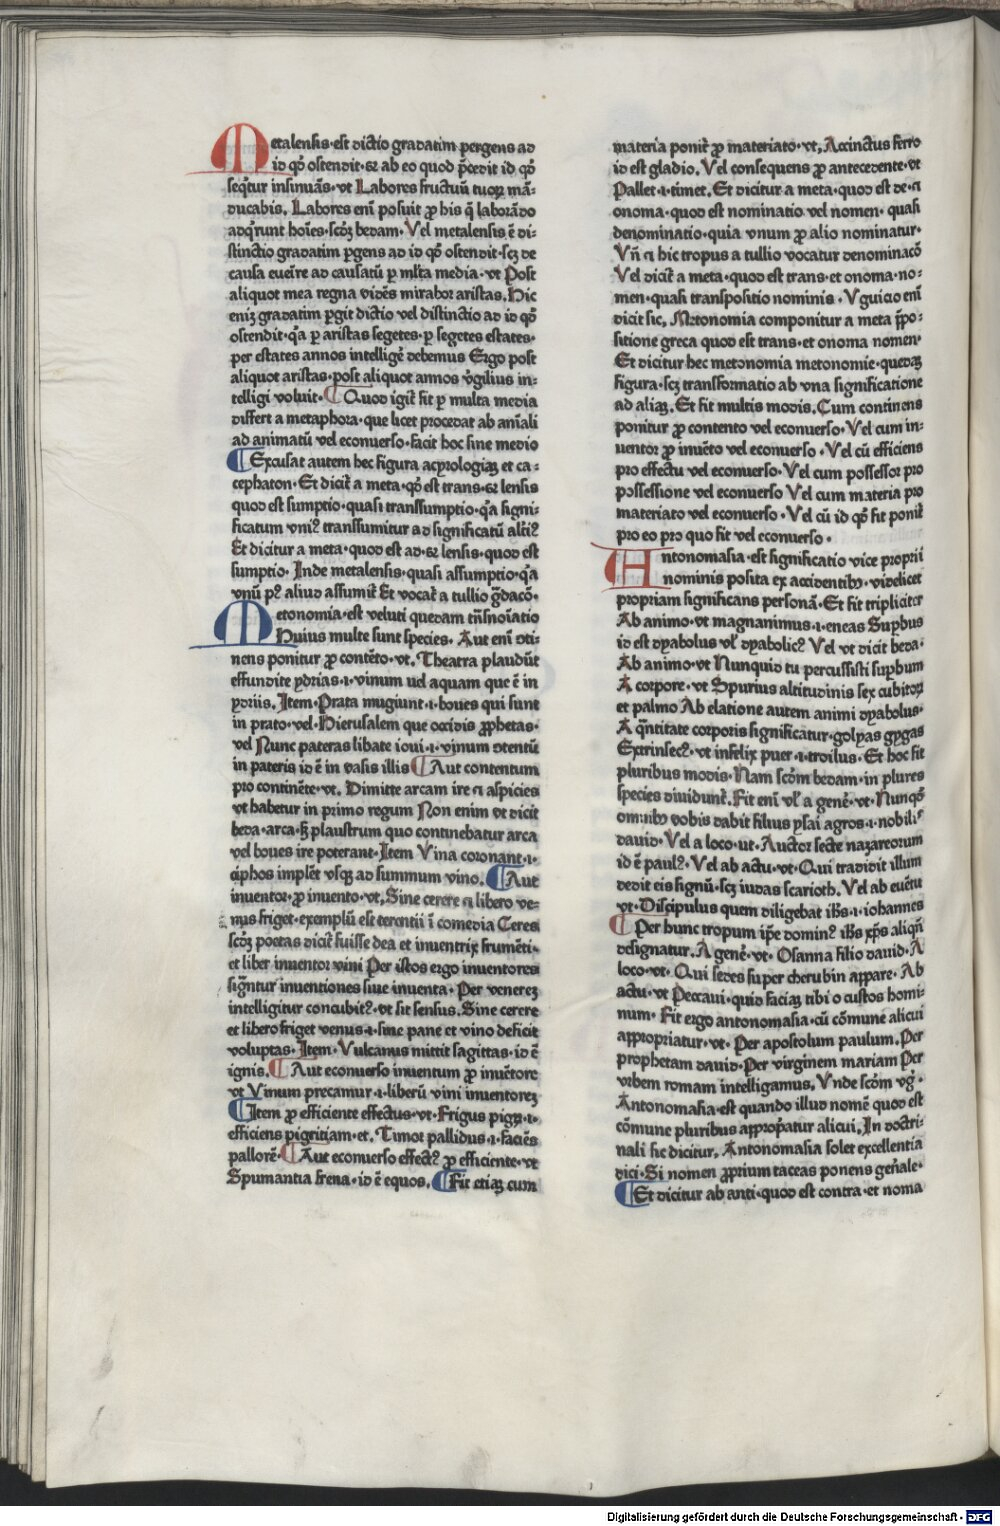 Metalensis·est dictio gradatim pergens ad
id qđ ostendit·⁊ ab eo quod p̄cedit id qđ
seqͥtur insinuās·vt Labores fructuū tuoꝝ mā-
ducabis. Labores enī posuit ꝓ his q̄ laborādo
adqͥrunt hoīes·scđꝫ bedam. Vel metalensis ē di-
stinctio gradatim ꝑgens ad id qđ ostendit·sꝫ de
causa eueīre ad causatū ꝑ ml̄ta media·vt Post
aliquot mea regna vidēs mirabor aristas. Hic
enim gradatim ꝑgit dictio vel distinctio ad id qđ
ostendit·qͥa ꝑ aristas segetes·ꝑ segetes estates·
per estates annos intelligē debemus Ergo post
aliquot aristas·post aliquot annos v̄gilius in-
telligi voluit· ¶Quod igit̄ fit ꝑ multa media
differt a metaphora·que licet procedat ab anīali
ad animatū vel econuerso·facit hoc sine medio
¶Excusat autem hec figura acyrologiaꝫ et ca-
cephaton·Et dicit̄ a meta·qđ est trans·⁊ lensis
quod est sumptio·quasi transsumptio·qͥa signi-
ficatum vniꝰ transsumitur ad significatū altiꝰ
Et dicitur a meta·quod est ad·⁊ lensis·quod est
sumptio· Inde metalensis·quasi assumptio·qͥa
vnū pꝰ aliud assumit̄ Et vocat̄ a tullio g̈dacō·
Metonomia·est veluti quedam tn̄snoīatio
Huius multe sunt species. Aut enī ↄti-
nens ponitur ꝓ contēto·vt. Theatra plaudūt
effundite ydrias·i·vinum ud aquam que ē in
ydriis. Item·Prata mugiunt·i·boues qui sunt
in prato·vel·Hierusalem que occidis ꝓphetas·
vel Nunc pateras libate ioui·i·vinum ↄtentū
in pateris id ē in vasis illis ¶Aut contentum
pro continēte·vt. Dimitte arcam ire ⁊ aspicies
vt habetur in primo regum Non enim vt dicit
beda·arca·sꝫ plaustrum quo continebatur arca
vel boues ire poterant·Item Vina coronant·i·
ciphos implēt vsqꝫ ad summum vino. ¶Aut
inuentor·ꝓ inuento·vt. Sine cerere ⁊ libero ve-
nus friget·exemplū est terentii ī comedia Ceres
scđꝫ poetas dicit̄ fuisse dea et inuentrix frumēti·
et liber inuentor vini Per istos ergo inuentores
sign̄tur inuentiones siue inuenta· Per venereꝫ
intelligitur concubitꝰ·vt sit sensus. Sine cerere
et libero friget venus·i·sine pane et vino deficit
voluptas· Item·Vulcanus mittit sagittas·id ē
ignis. ¶Aut econuerso inuentum ꝓ inuētore
vt Vinum precamur·i·liberū vini inuentoreꝫ
¶Item ꝓ efficiente effectus·vt·Frigus pigꝝ·i·
efficiens pigritiam·et. Timor pallidus·i·faciēs
pallorē·¶Aut econuerso effectꝰ ꝓ efficiente·vt
Spumantia frena·id ē equos. ¶Fit etiaꝫ cum
materia ponit̄ ꝓ materiato·vt. Accinctus ferro
id est gladio. Vel consequens ꝓ antecedente·vt
Pallet·i·timet. Et dicitur a meta·quod est de·⁊
onoma·quod est nominatio vel nomen· quasi
denominatio·quia vnum ꝓ alio nominatur·
Vn̄ ⁊ hic tropus a tullio vocatur denominacō
Vel dicit̄ a meta·quod est trans·et onoma·no-
men·quasi transpositio nominis. Vguicio enī
dicit sic. Metonomia componitur a meta p̄po-
sitione greca quod est trans·et onoma nomen·
Et dicitur hec metonomia metonomie·quedaꝫ
figura·sꝫ transformatio ab vna significatione
ad aliaꝫ. Et fit multis modis. Cum continens
ponitur ꝓ contento vel econuerso·Vel cum in-
uentor ꝓ inuēto vel econuerso·Vel cū efficiens
pro effectu vel econuerso·Vel cum possessor pro
possessione vel econuerso Vel cum materia pro
materiato vel econuerso·Vel cū id qđ fit ponit̄
pro eo pro quo fit vel econuerso·
Antonomasia·est significatio vice proprii
nominis posita ex accidentibꝫ·videlicet
propriam significans personā·Et fit tripliciter
Ab animo·vt magnanimus·i·eneas Suꝑbus
id est dyabolus vl̄ dyabolicꝰ Vel vt dicit beda·
Ab animo·vt Nunquid tu percussisti suꝑbum
A corpore·vt Spurius altitudinis sex cubitoꝝ
et palmo Ab elatione autem animi dyabolus·
A qͣntitate corporis significatur·golyas gygas
Extrinsecꝰ·vt infelix puer·i·troilus·Et hoc fit
pluribus modis·Nam scđm bedam·in plures
species diuidunt̄. Fit enī vl̄ a genē·vt·Nunqđ
omnibꝫ vobis dabit filius ysai agros·i·nobilis
dauid·Vel a loco·ut·Auctor secte nazareorum
id ē paulꝰ·Vel ab actu·vt·Qui tradidit illum
dedit eis signū·sꝫ iudas scarioth. Vel ab euētu
vt·Discipulus quem diligebat ihs̄·i·iohannes
¶Per hunc tropum ip̄e dominꝰ ihs̄ xp̄s aliqn̄
designatur. A genē·vt·Osanna filio dauid·A
loco·vt·Qui sedes super cherubin appare·Ab
actu·vt Peccaui·quid faciaꝫ tibi o custos homi-
num· Fit ergo antonomasia·cū cōmune alicui
appropriatur·vt·Per apostolum paulum. Per
prophetam dauid·Per virginem mariam Per
vrbem romam intelligamus. Vnde scđm vg̈·
Antonomasia·est quando illud nomē quod est
cōmune pluribus appropͥatur alicui. In doctri-
nali sic dicitur. Antonomasia solet excellentia
dici·Si nomen ꝓprium taceas ponens geñale·
¶Et dicitur ab anti·quod est contra·et noma
Digitalisierung gefördert durch die Deutsche Forschungsgemeinschaft · DFG